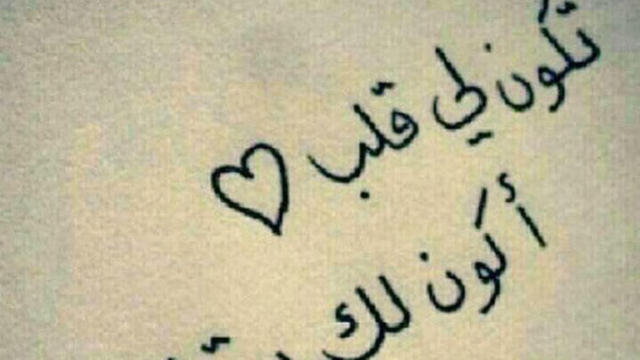 تكون لي قلب
أكون لك